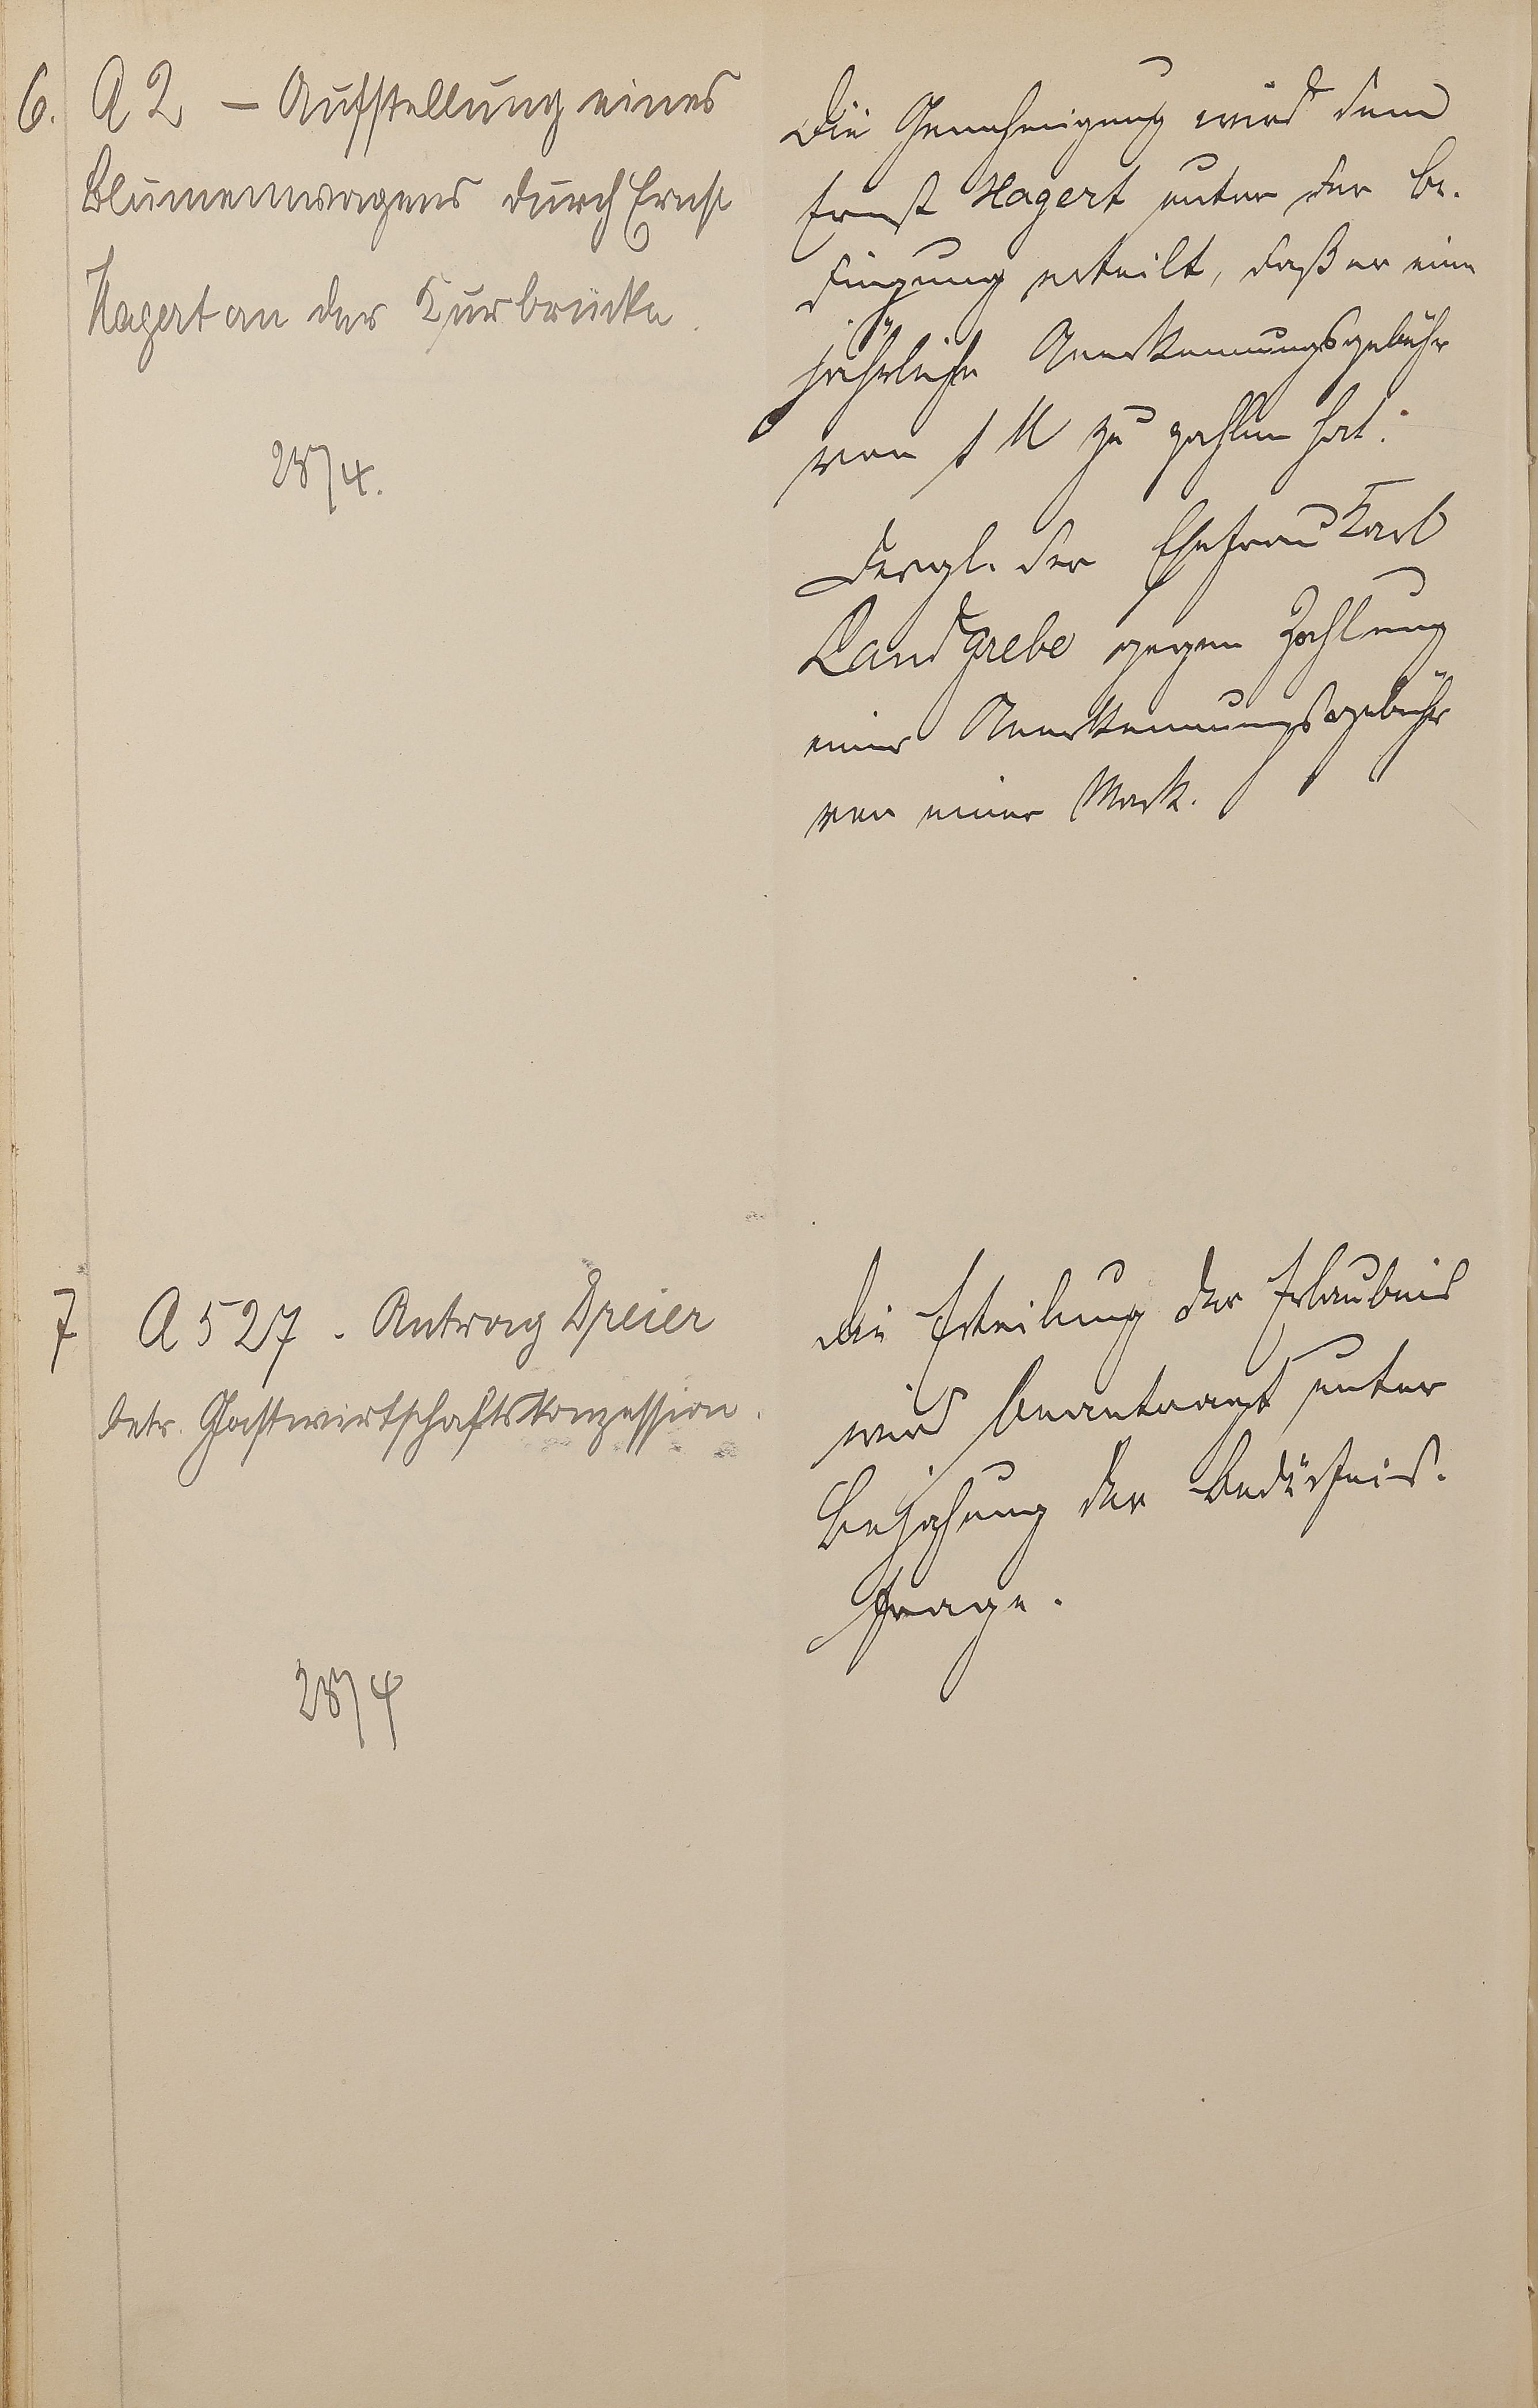 6. A 2 – Aufstellung eines
Blumenwagens durch Ernst
Hagert an der Kurbrücke.
28/4.
Die Genehmigung wird dem
Ernst Hagert unter der Be-
dingung erteilt, daß er eine
jährliche Anerkennungsgebühr
von 1 M zu zahlen hat.
Dergl. der Ehefrau Karl
Landgrebe gegen Zahlung
einer Anerkennungsgebühr
von einer Mark.
7 A 527. Antrag Dreier
betr. Gastwirtschaftskonzession.
28/4
Die Erteilung der Erlaubnis
wird beantragt unter
Bejahung der Bedürfnis-
frage.